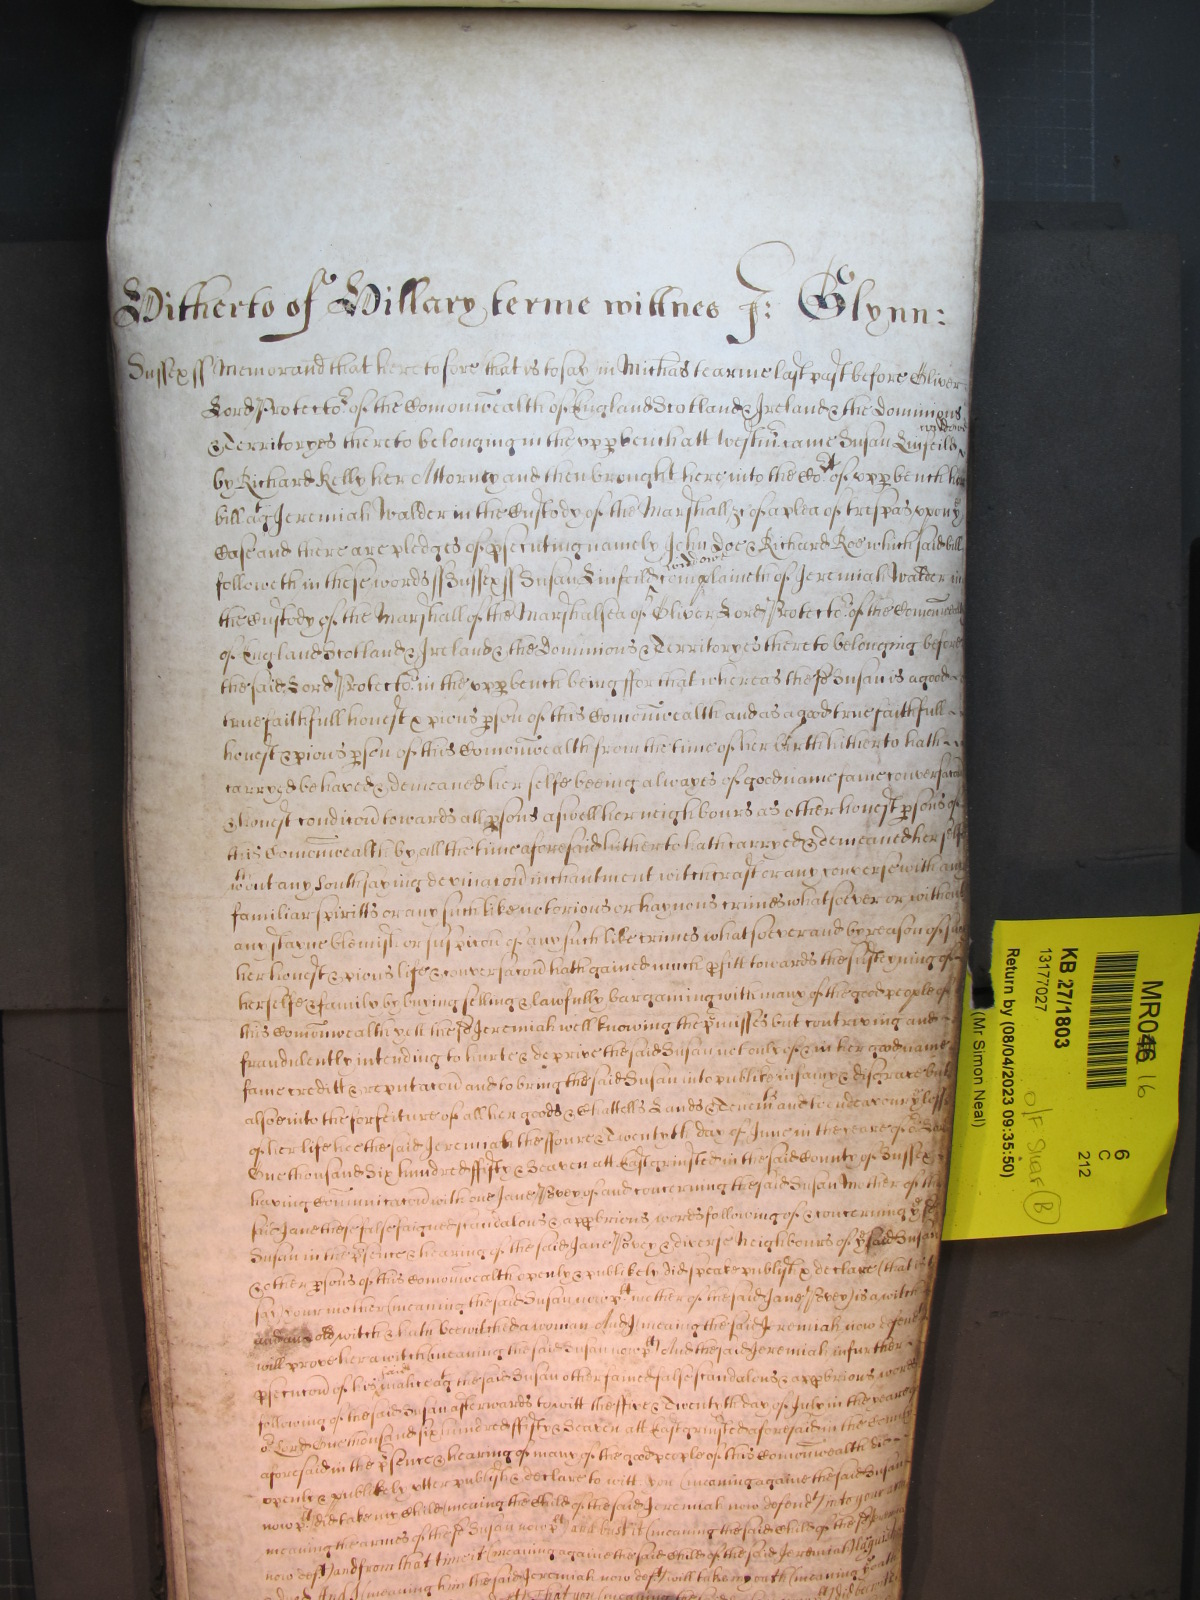 Hitherto of Hillary terme wittnes J: Glynn:
Sussex ss Memorand that heretofore that is to say in Michas tearme last past before Oliver
Lord Protector of the Comonwealth of England Scotland & Ireland & the Dominions
& Territoryes thereto belonging in the upp bench att Westm came Susan Linfeild widdow
by Richard Kelly her Attorney and then brought here into the Cot of upp bench her
bill agt Jeremiah Walder in the Custody of the Marshall &c of a plea of trespas upon ye
Case and there are pledges of psecuting namely John Doe & Richard Roe which said bill
followeth in these words ss Sussex ss Susan Linfeild widdowe complaineth of Jeremiah Walder in
the Custody of the Marshall of the Marshalsea of Oliver Lord Protector of the Comonwealth
of England Scotland & Ireland & the Dominions & Territoryes thereto belonging before
the said Lord Protector in the upp bench being ffor that whereas the sd Susan is a good
true faithfull honest & pious pson of this Comonwealth and as a good true faithfull
honest & pious pson of this Comonwealth from the time of her birth hitherto hath
carryed behaved & demeaned her selfe beeing alwayes of good name fame conversacon
& honest condicon towards all psons aswell her neighbours as other honest psons of
this Comonwealth by all the time aforesaid hitherto hath carryed & demeaned her selfe
wthout any Southsaying devinacon inchantment witchcraft or any converse with any
familiar spiritts or any such like notorious or haynous crimes whatsoever or without
any stayne blemish or suspicon of any such like crimes whatsoever and by reason of
her honest & pious life & conversacon hath gained much pfitt towards the susteyning of
herselfe & family by buying selling & lawfully bargaining with many of the good people of
this Comonwealth yett the sd Jeremiah well knowing the pmisses but contriving and
fraudulently intending to hurte & deprive the said Susan not only of & in her good name
fame creditt & reputacon and to bring the said Susan into publike infamy & disgrace but
alsoe into the forfeiture of all her goods & Chattells Lands & Tenemts and to endeavour ye losse
of her life hee the said Jeremiah the ffoure & Twentyth day of June in the yeare of
One thousand Six hundred ffifty & Seaven att Eastgrinsted in the said County of Sussex
having Comunicacon with one Jane Povey of and concerning the said Susan Mother of the
said Jane these false faigned scandalous & approbrious words following of & concerning ye sd
Susan in the psence & hearing of the said Jane Povey & diverse Neighbours of ye said Susan
& other psons of this Comonwealth openly & publikely did speake publish & declare (that is to
say) your mother (meaning the said Susan now plt mother of the said Jane Povey) is a witch
and an old witch & hath bewitched a woman And I (meaning the said Jeremiah now defendt)
will prove her a witch (meaning the said Susan now plt) And the said Jeremiah in further
psecucon of his said malice agt the said Susan other fained false scandalous & approbrious words
following of the said Susan afterwards to witt the ffive & Twentyth day of July in the yeare of
or Lord One thousand six hundred ffifty & Seaven att Eastgrinsted aforesaid in the County
aforesaid in the psence & hearing of many of the good people of this Comonwealth did
openly & publikely utter publish & declare to witt you (meaning againe the said Susan
now plt) did take my Child (meaning the Child of the said Jeremiah now defendt) into your armes
meaning the armes of the sd Susan now plt) and busst it (meaning the said Child of the sd Jeremiah
now deft) and from that time it (meaning againe the said Child of the said Jeremiah)
And I (meaning him the said Jeremiah now deft) will take my oath (meaning
That you (meaning the